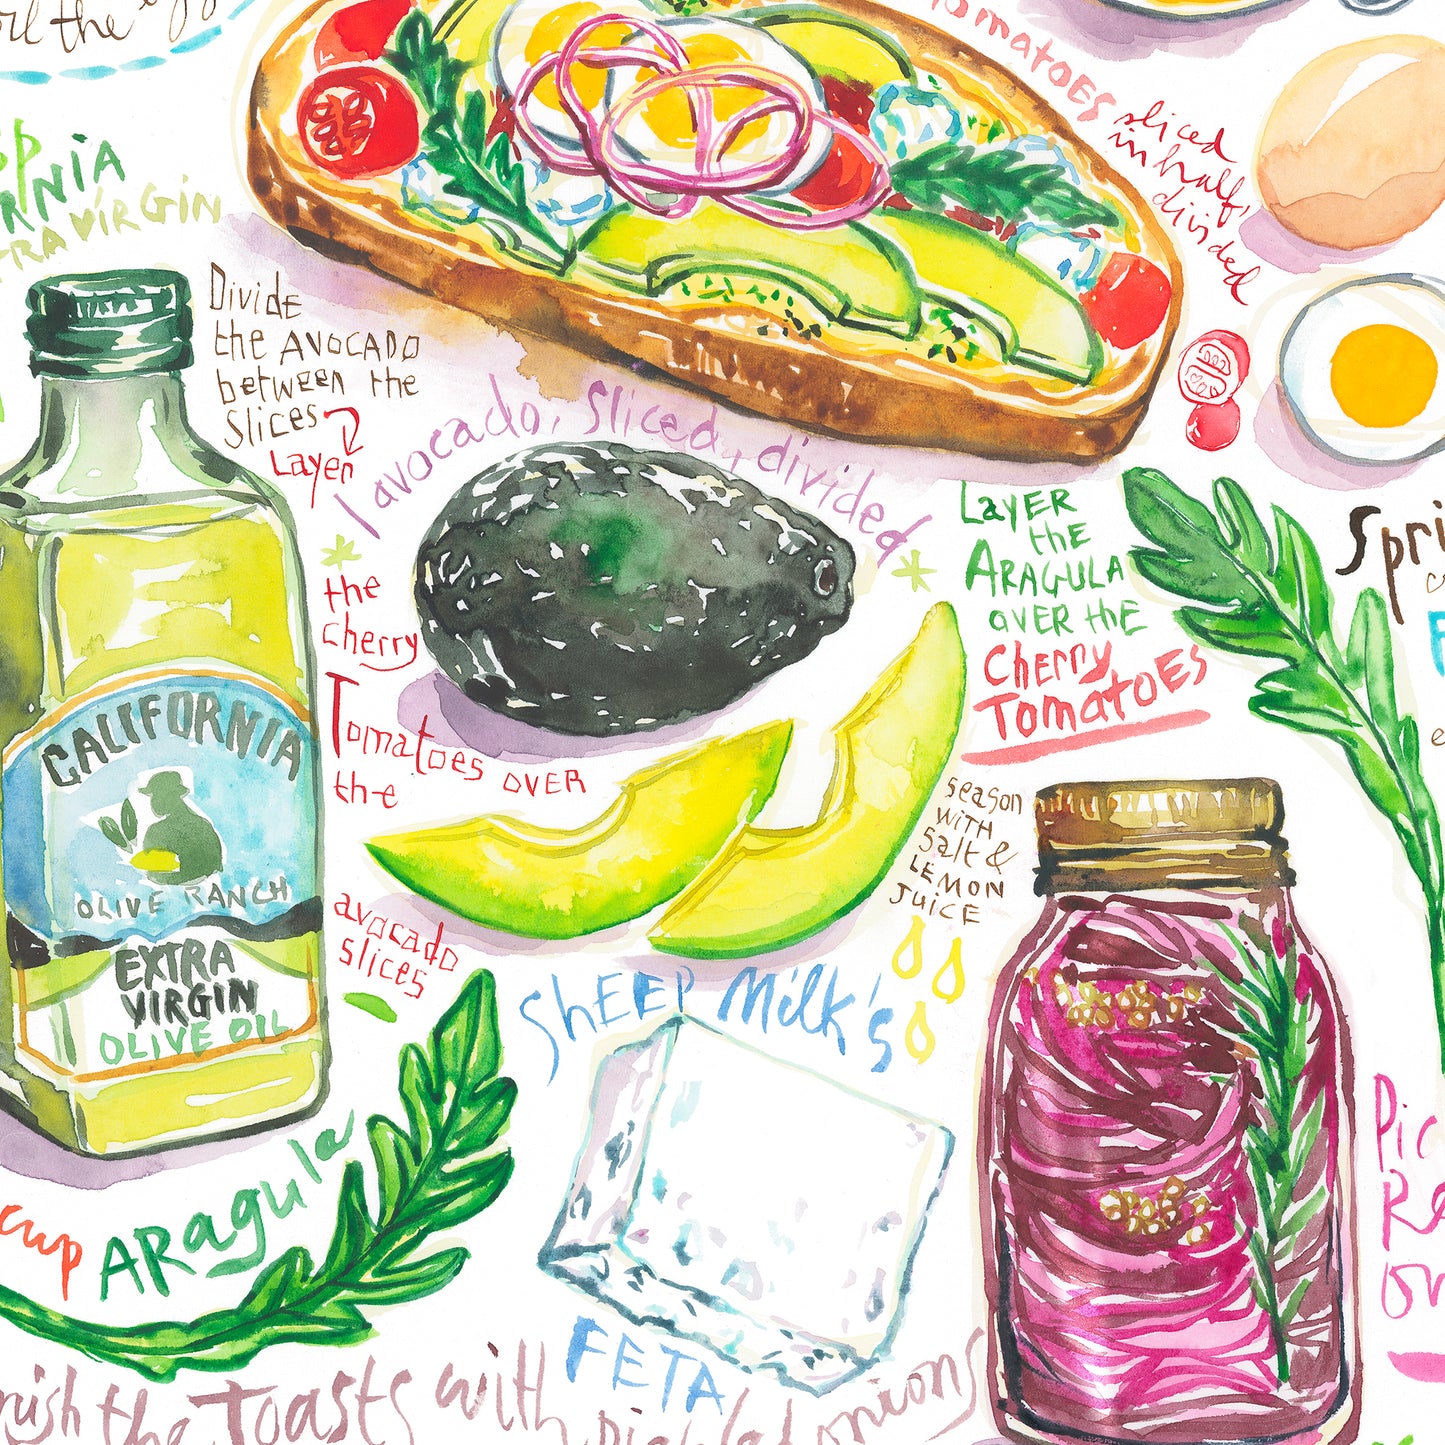 the egg
VIRGIN
TOMATOES
sliced
in half,
divided
Divide
the AVOCADO
between the
Slices
Layer
1 avocado, sliced, divided
the
cherry
Tomatoes OVER
the
avocado
slices
LAYER
the
ARAGULA
OVER the
Cherry
TomatoES
season
WITH
Salt &
LEMON
JUICE
CALIFORNIA
OLIVE RANCH
EXTRA
VIRGIN
OLIVE OIL
SHEEP Milk's
FETA
cup ARagula
the Toasts with pickled onions